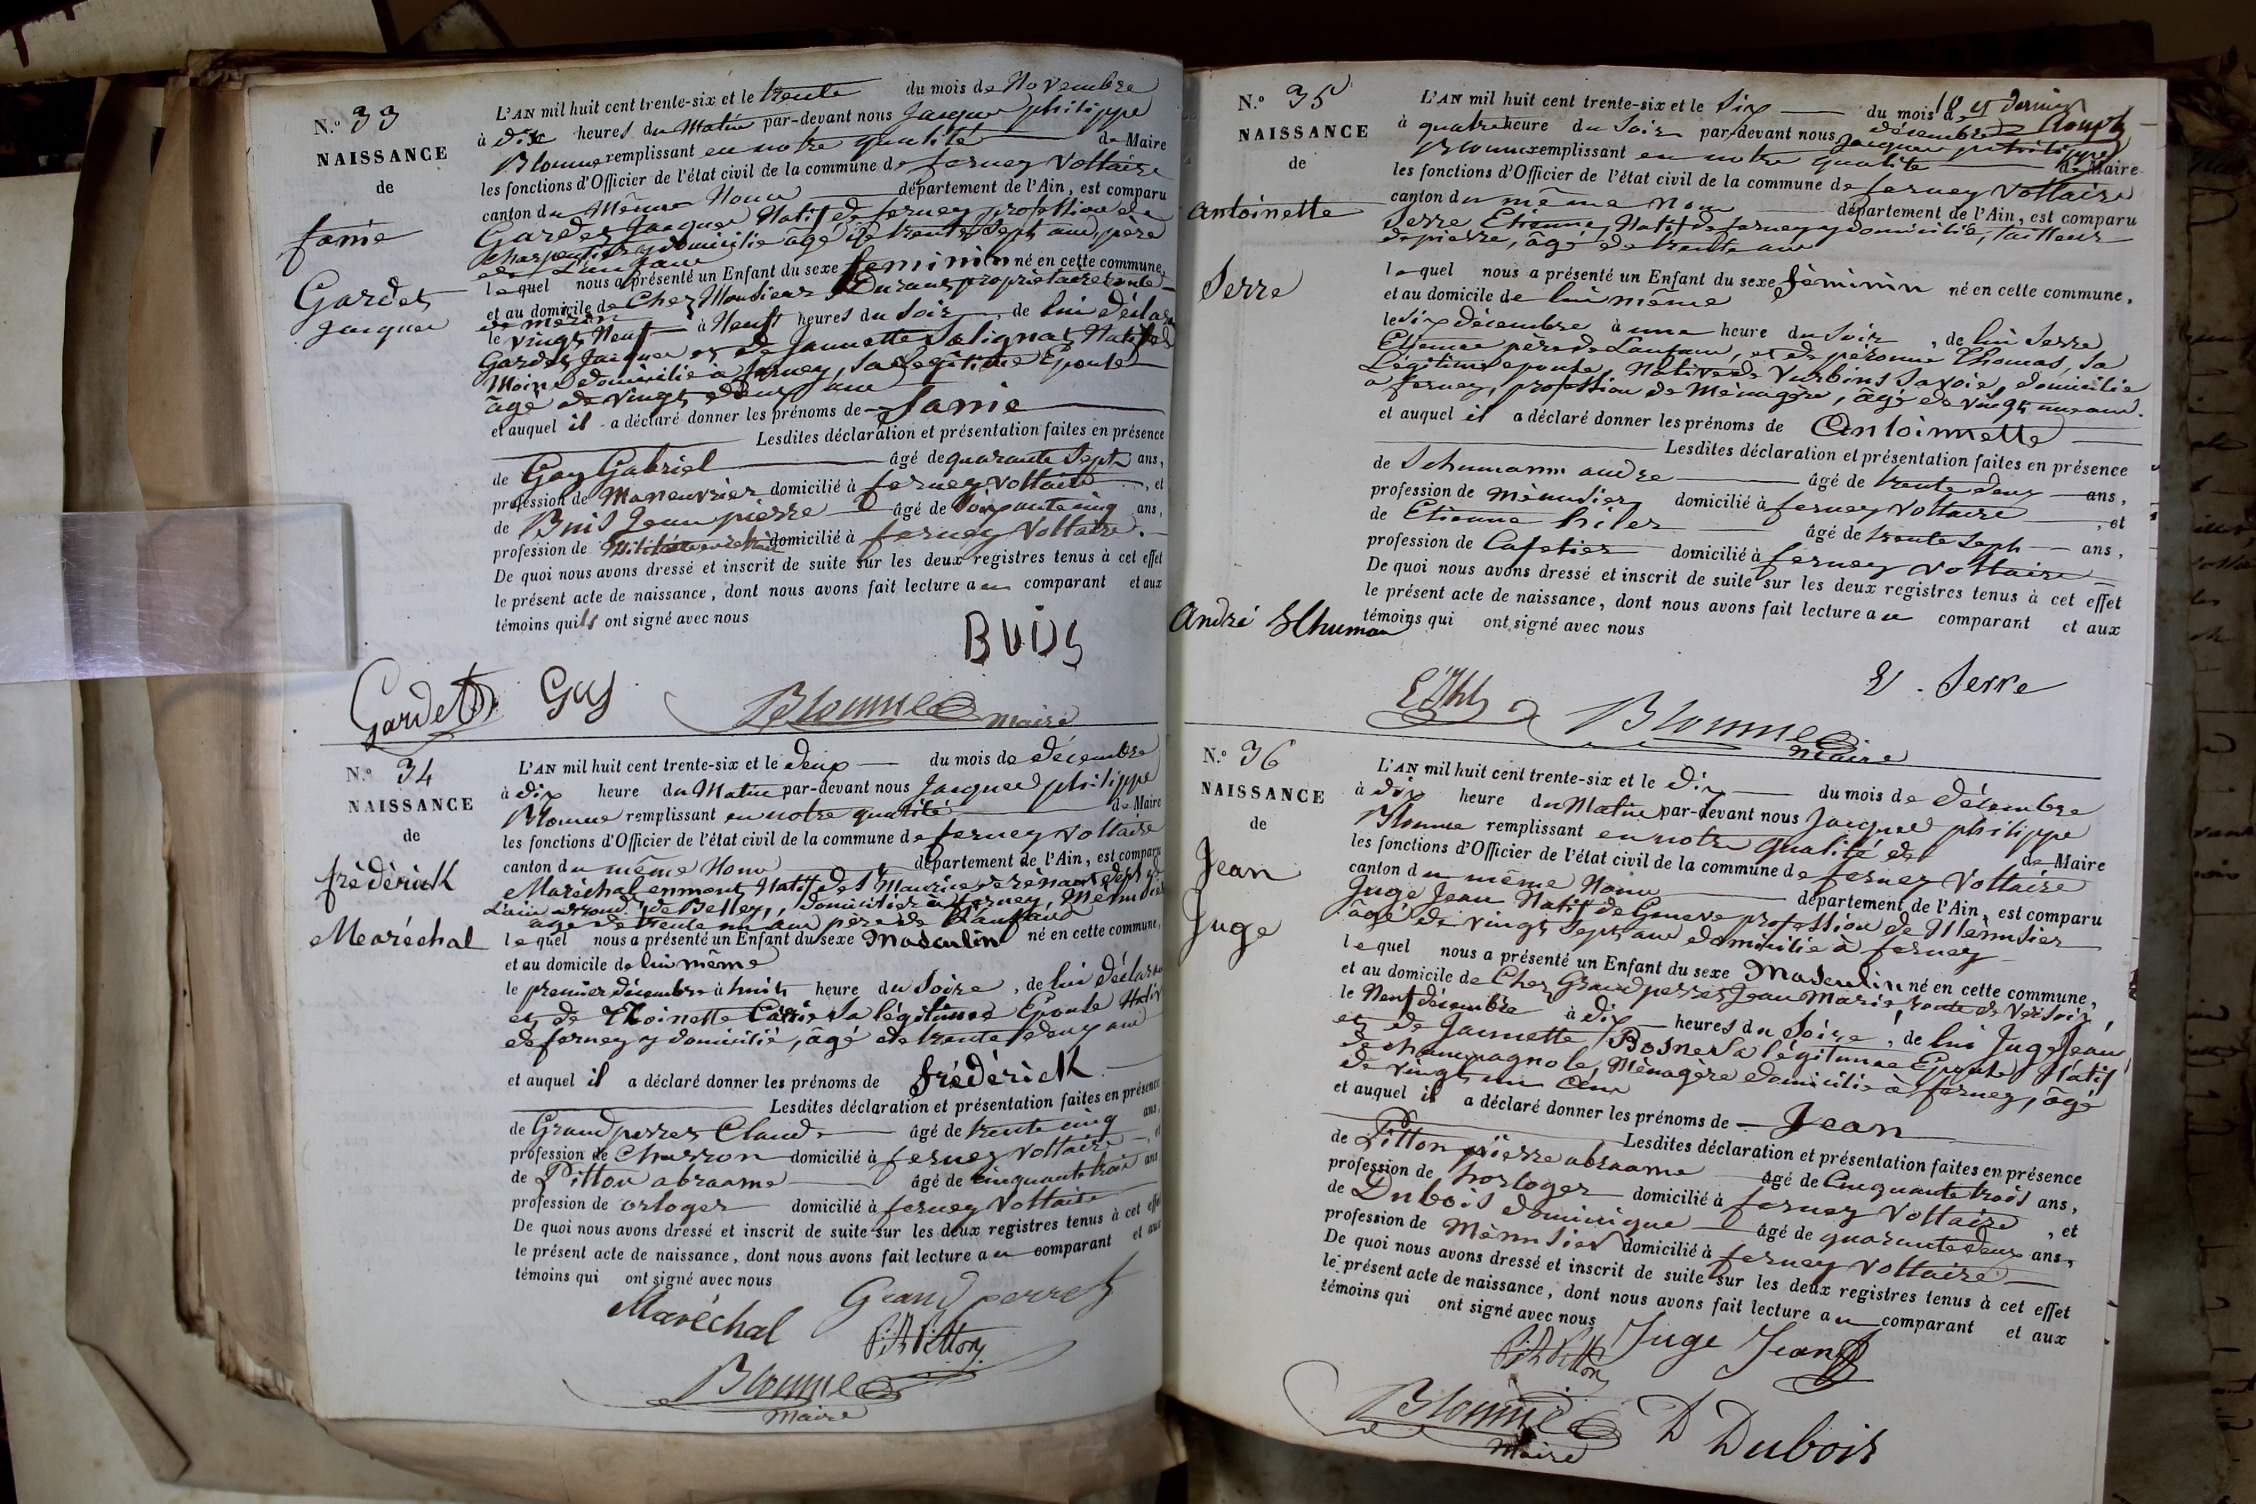 N.º 33
NAISSANCE
de
fanie
Gardet
Jacques
L'AN mil huit cent trente-six et le trente du mois de Novembre
à dix heures du Matin par-devant nous Jacques philippe
Blonne remplissant en notre qualité de Maire
les fonctions d'Officier de l'état civil de la commune de ferney Voltaire
canton du Même Nom département de l'Ain, est comparu
Gardet Jacques Natif de ferney profession de
Charpentier y domicilié âgé de trente Sept ans, pere
de L'enfant
lequel nous a présenté un Enfant du sexe feminin né en cette commune,
et au domicile de Chez Monsieur Durant propriétaire route
de meirin
le vingt Neuf à Neuf heures du Soir, de lui déclarant
Gardet Jacques et de Jannette Salignat Native de
Moin domicilié à ferney, Sa légitime Epouse
âgé de vingt deux ans
et auquel il a déclaré donner les prénoms de fanie
Lesdites déclaration et présentation faites en présence
de Gay Gabriel âgé de quarante Sept ans,
profession de Maneuvrier domicilié à ferney voltaire, et
de Buis Jean pierre âgé de Soixante cinq ans,
profession de domicilié à ferney Voltaire.
De quoi nous avons dressé et inscrit de suite sur les deux registres tenus à cet effet
le présent acte de naissance, dont nous avons fait lecture au comparant et aux
témoins quils ont signé avec nous
BUIS
Gardet Gay Blonne maire
N.º 34
NAISSANCE
de
frédérick
Maréchal
L'AN mil huit cent trente-six et le deux du mois de décembre
à dix heure du Matin par-devant nous Jacques philippe
Blonne remplissant en notre qualité de Maire
les fonctions d'Officier de l'état civil de la commune de ferney Voltaire
canton du même Nom département de l'Ain, est comparu
Maréchal Natif de St Maurice de
L'ain de Belley, domicilier à ferney, Menusier
âgé de trente un ans père de L'enfant
lequel nous a présenté un Enfant du sexe Masculin né en cette commune,
et au domicile de lui même
le premier décembre à huit heure du Soire, de lui déclarant
et de Thoinette Sa légitime Epouse Native
de ferney y domicilié, âgé de trente deux ans
et auquel il a déclaré donner les prénoms de frédérick
Lesdites déclaration et présentation faites en présence
de Grand perret Claude âgé de trente cinq ans,
profession de Charron domicilié à ferney voltaire, et
de Pitton abraame âgé de cinquante trois ans
profession de orloger domicilié à ferney Voltaire
De quoi nous avons dressé et inscrit de suite sur les deux registres tenus à cet effet
le présent acte de naissance, dont nous avons fait lecture au comparant et aux
témoins qui ont signé avec nous
Maréchal Grand perret
Pitton
Blonne
maire
N.º 35
NAISSANCE
de
Antoinette
Serre
L'AN mil huit cent trente-six et le Six du mois de décembre
à quatre heure du Soir par-devant nous Jacques philippe
Blonne remplissant en notre qualité de Maire
les fonctions d'Officier de l'état civil de la commune de ferney Voltaire
canton du même Nom département de l'Ain, est comparu
Serre Etienne, Natif de ferney y domicilié, tailleur
de pierre, âgé de trente ans
lequel nous a présenté un Enfant du sexe féminin né en cette commune,
et au domicile de lui même
le Six décembre à une heure du Soir, de lui Serre
Etienne pere de L'enfant, et de péronne Thomas, Sa
Légitime epouse, Native de Savoie, domicilié
à ferney, profession de Ménagère, âgé de vingt neuf ans.
et auquel il a déclaré donner les prénoms de Antoinnette
Lesdites déclaration et présentation faites en présence
de Schumann andre âgé de trente deux ans,
profession de Ménusier domicilié à ferney Voltaire, et
de Etienne hiler âgé de trente Sept ans,
profession de Cafetier domicilié à ferney Voltaire
De quoi nous avons dressé et inscrit de suite sur les deux registres tenus à cet effet
le présent acte de naissance, dont nous avons fait lecture au comparant et aux
témoins qui ont signé avec nous
André Schuman
E. Serre
Blonne
maire
N.º 36
NAISSANCE
de
Jean
Juge
L'AN mil huit cent trente-six et le dix du mois de décembre
à dix heure du Matin par-devant nous Jacques philippe
Blonne remplissant en notre qualité de de Maire
les fonctions d'Officier de l'état civil de la commune de ferney Voltaire
canton du même Nom département de l'Ain, est comparu
Juge Jean Natif de Geneve profession de Ménusier
âgé de vingt Sept ans domicilié à ferney
lequel nous a présenté un Enfant du sexe Masculin né en cette commune,
et au domicile de Chez Grand perret Jean Marie, route de Versoix,
le Neuf décembre à dix heures du Soire, de lui Juge Jean
et de Jannette Bosne Sa légitime Epouse, Natif
de Champagnole, Ménagère domicilié à ferney, âgé
de vingt un ans
et auquel il a déclaré donner les prénoms de Jean
Lesdites déclaration et présentation faites en présence
de Pitton pierre abraame âgé de Cinquante trois ans,
profession de horloger domicilié à ferney Voltaire, et
de Dubois dominique âgé de quarante deux ans,
profession de Ménusier domicilié à ferney Voltaire
De quoi nous avons dressé et inscrit de suite sur les deux registres tenus à cet effet
le présent acte de naissance, dont nous avons fait lecture au comparant et aux
témoins qui ont signé avec nous
Pitton Juge Jean
Blonne D Dubois
maire